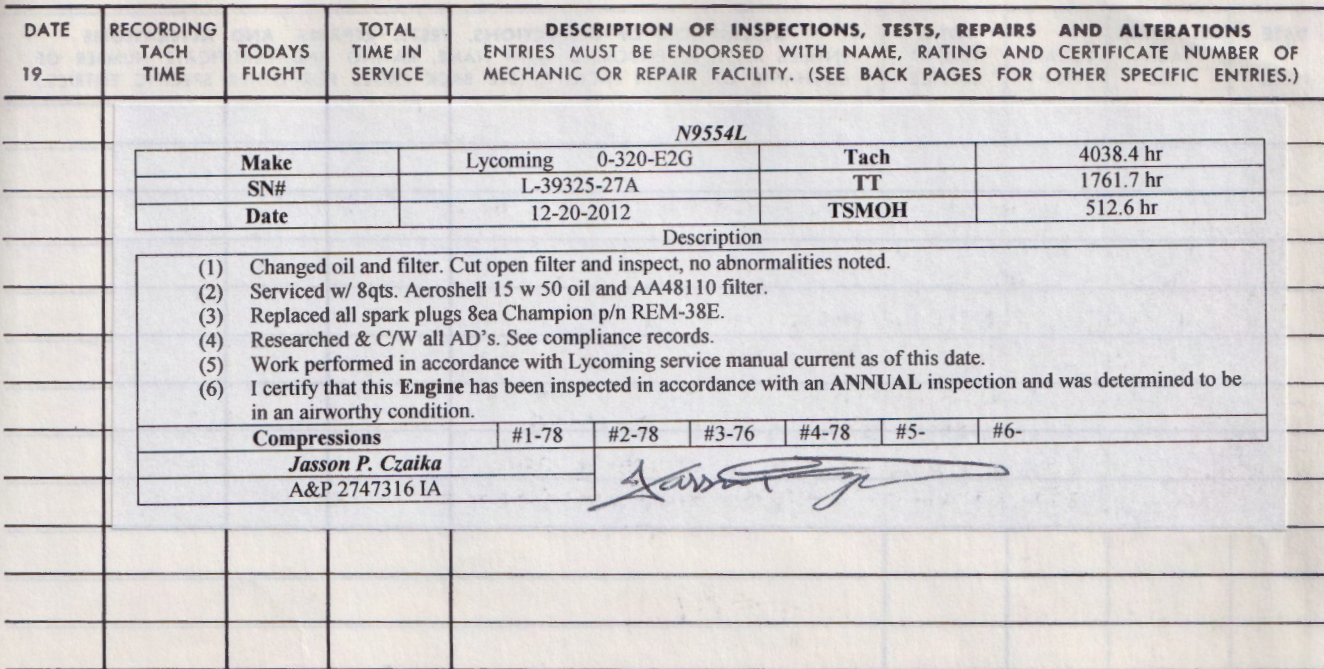 DATE RECORDING TOTAL DESCRIPTION OF INSPECTIONS, TESTS, REPAIRS AND ALTERATIONS
TACH TODAYS TIME IN ENTRIES MUST BE ENDORSED WITH NAME, RATING AND CERTIFICATE NUMBER OF
19 TIME FLIGHT SERVICE MECHANIC OR REPAIR FACILITY. (SEE BACK PAGES FOR OTHER SPECIFIC ENTRIES.)
N9554L
Make Lycoming 0-320-E2G Tach 4038.4 hr
SN# L-39325-27A TT 1761.7 hr
Date 12-20-2012 TSMOH 512.6 hr
Description
(1) Changed oil and filter. Cut open filter and inspect, no abnormalities noted.
(2) Serviced w/ 8qts. Aeroshell 15 w 50 oil and AA48110 filter.
(3) Replaced all spark plugs 8ea Champion p/n REM-38E.
(4) Researched & C/W all AD's. See compliance records.
(5) Work performed in accordance with Lycoming service manual current as of this date.
(6) I certify that this Engine has been inspected in accordance with an ANNUAL inspection and was determined to be
in an airworthy condition.
Compressions #1-78 #2-78 #3-76 #4-78 #5- #6-
Jasson P. Czaika
A&P 2747316 IA